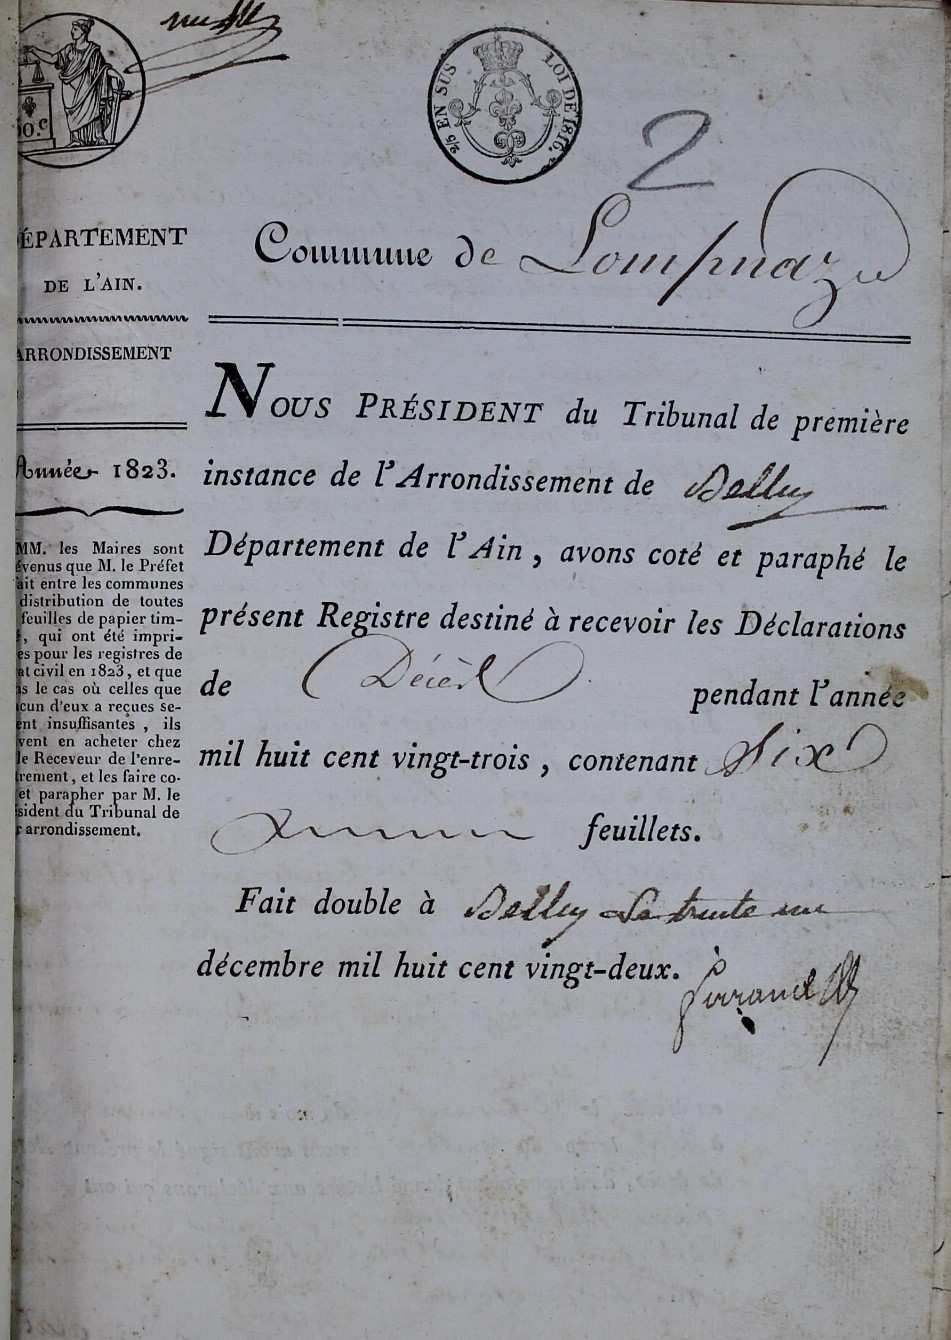 0.c
2/5 EN SUS
LOI DE 1816.
2
DÉPARTEMENT
DE L'AIN.
ARRONDISSEMENT
Année 1823.
MM. les Maires sont
évenus que M. le Préfet
ait entre les communes
distribution de toutes
feuilles de papier tim-
é, qui ont été impri-
es pour les registres de
at civil en 1823, et que
ns le cas où celles que
acun d'eux a reçues se-
ent insuffisantes, ils
vent en acheter chez
le Receveur de l'enre-
trement, et les faire co-
et parapher par M. le
ésident du Tribunal de
r arrondissement.
Commune de Lompnaz
NOUS PRÉSIDENT du Tribunal de première
instance de l'Arrondissement de Belley
Département de l'Ain, avons coté et paraphé le
présent Registre destiné à recevoir les Déclarations
de Décès pendant l'année
mil huit cent vingt-trois, contenant Six
feuillets.
Fait double à Belley Le trente un
décembre mil huit cent vingt-deux.